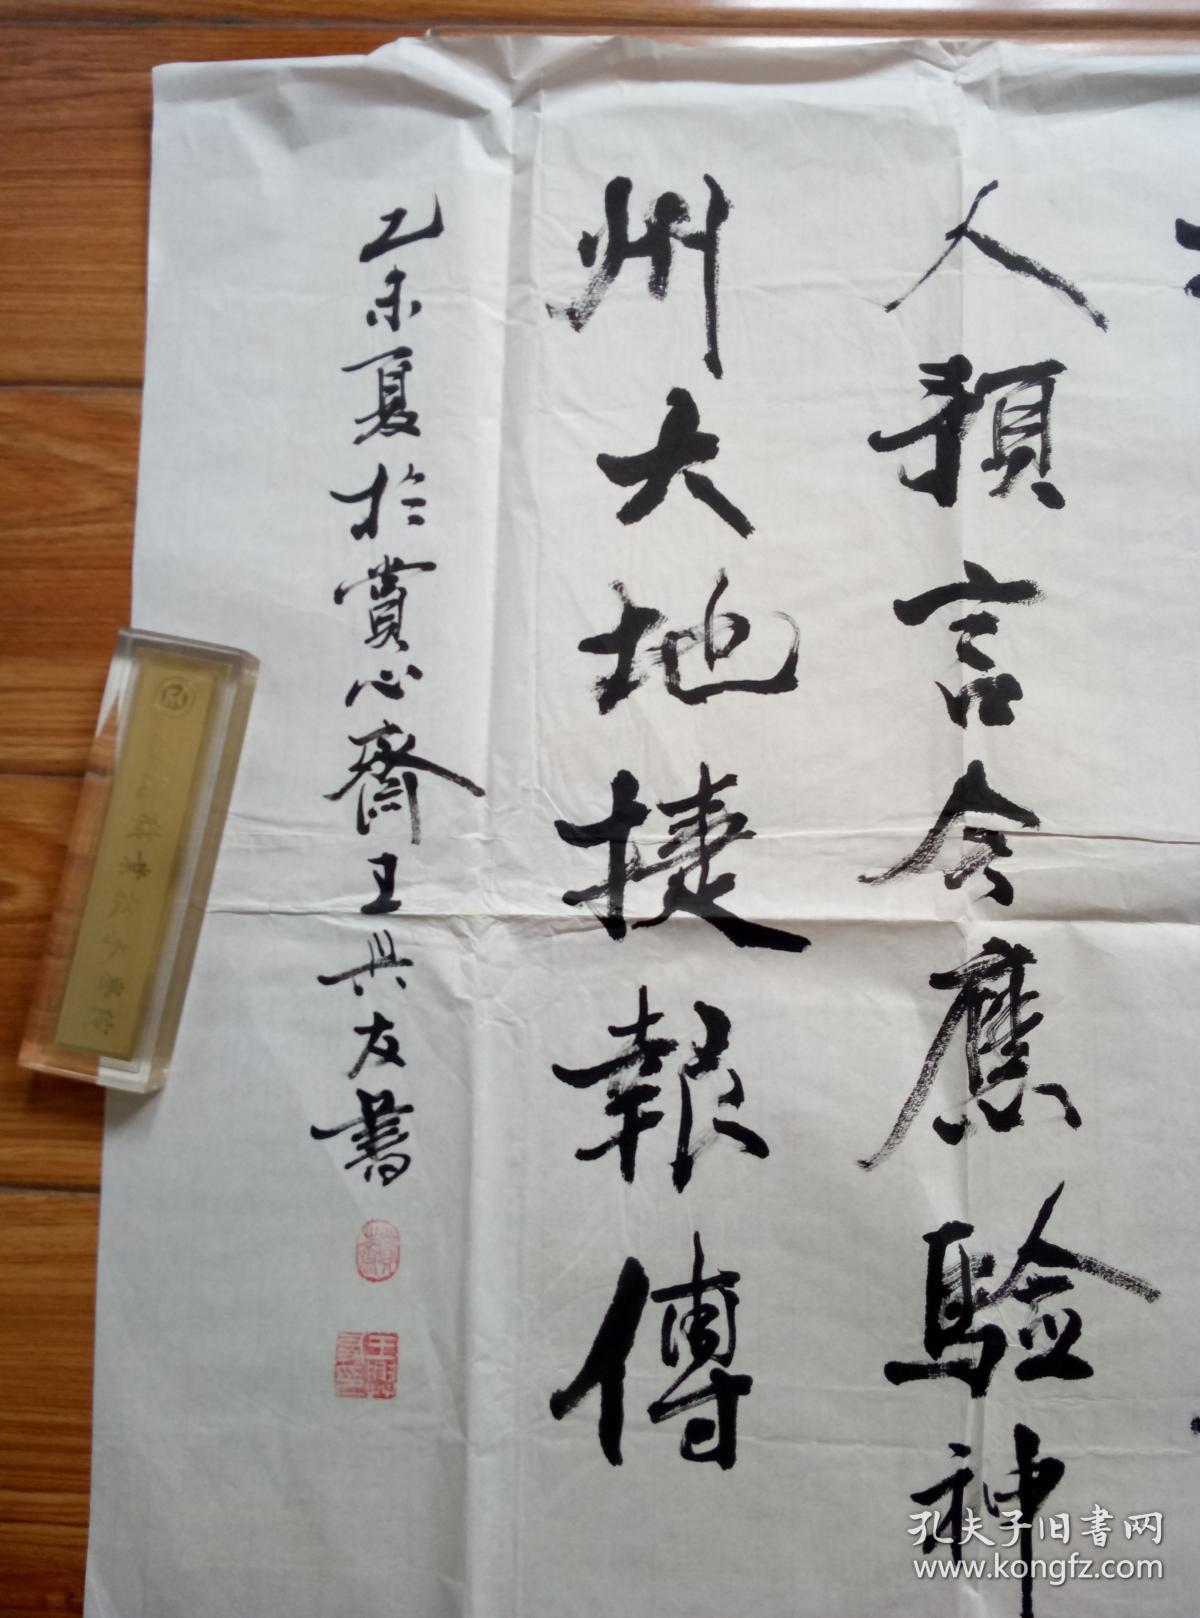 人預言今應驗神
州大地捷報傳
乙未夏於賞心齋王兴友書
孔夫子旧書网
www.kongfz.com